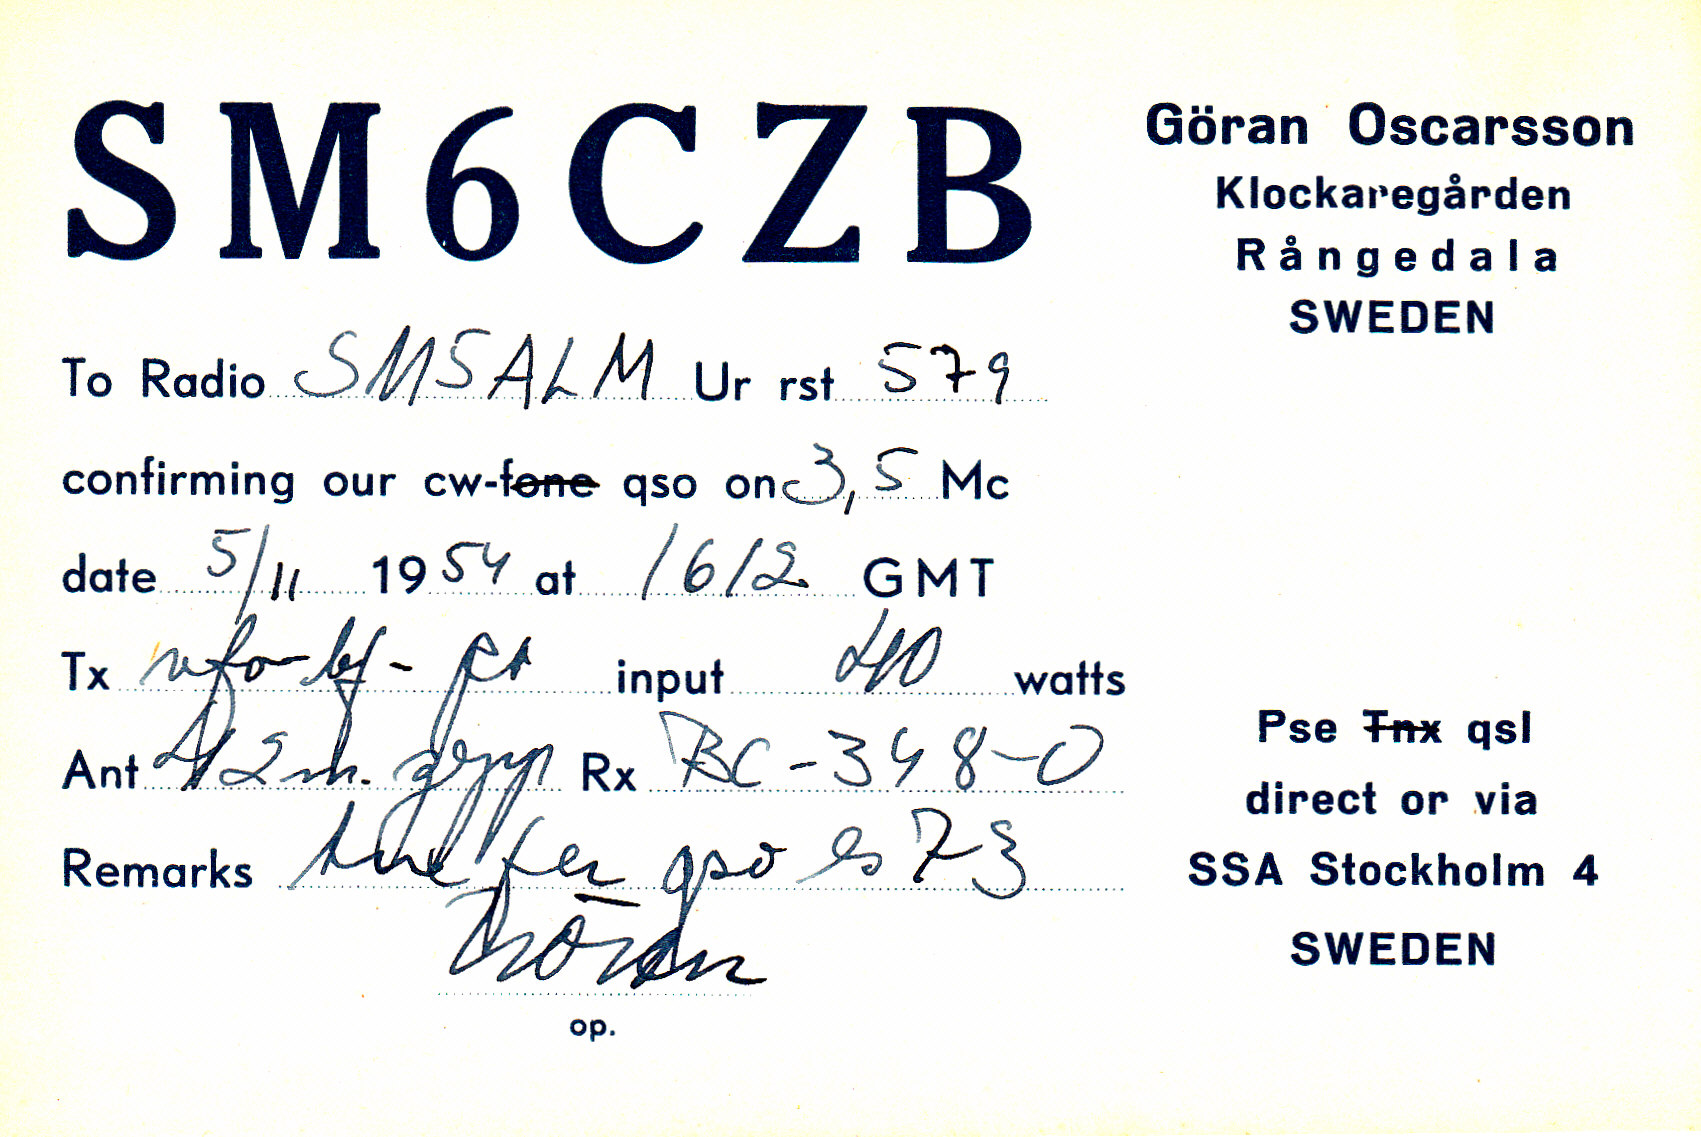 SM6CZB
Göran Oscarsson
Klockaregården
Rångedala
SWEDEN
To Radio SM5ALM Ur rst 579
confirming our cw-fone qso on 3,5 Mc
date 5/11 1954 at 1612 GMT
Tx vfo-bf- input 40 watts
Ant 42 m. Rx BC-348-O
Remarks fer qso es 73
Göran
op.
Pse Tnx qsl
direct or via
SSA Stockholm 4
SWEDEN